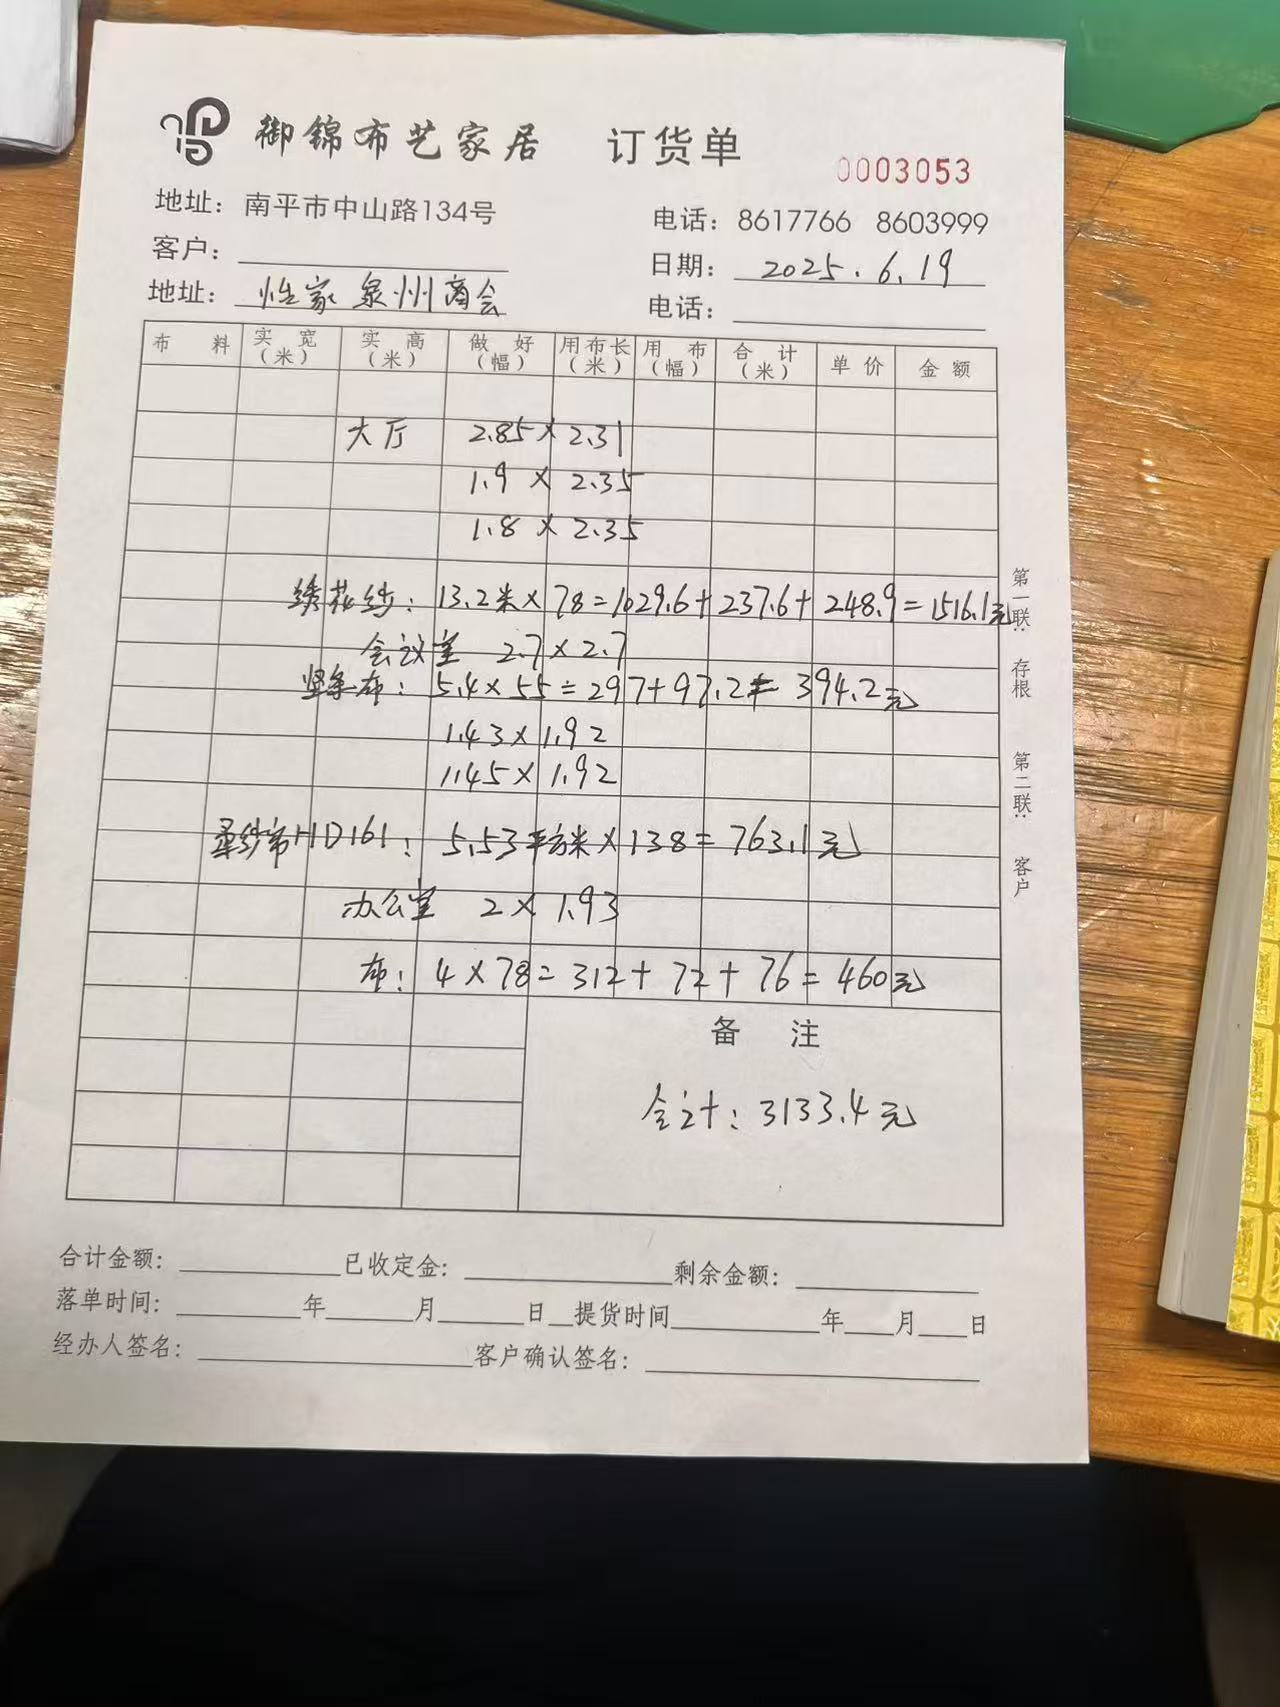 御锦布艺家居 订货单
0003053
地址：南平市中山路134号 电话：8617766 8603999
客户： 日期：2025.6.19
地址：恒家泉州商会 电话：
布料 实宽（米） 实高（米） 做好（幅） 用布长（米） 用布（幅） 合计（米） 单价 金额
大厅 2.85×2.31
1.9×2.35
1.8×2.35
绣花纱：13.2米×78=1029.6+237.6+248.9=1516.1元
会议室 2.7×2.7
竖条布：5.4×55=297+97.2=394.2元
1.43×1.92
1.45×1.92
柔纱帘HD161：5.53平方米×138=763.1元
办公室 2×1.93
布：4×78=312+72+76=460元
备注
合计：3133.4元
第一联：存根 第二联：客户
合计金额： 已收定金： 剩余金额：
落单时间： 年 月 日 提货时间 年 月 日
经办人签名： 客户确认签名：